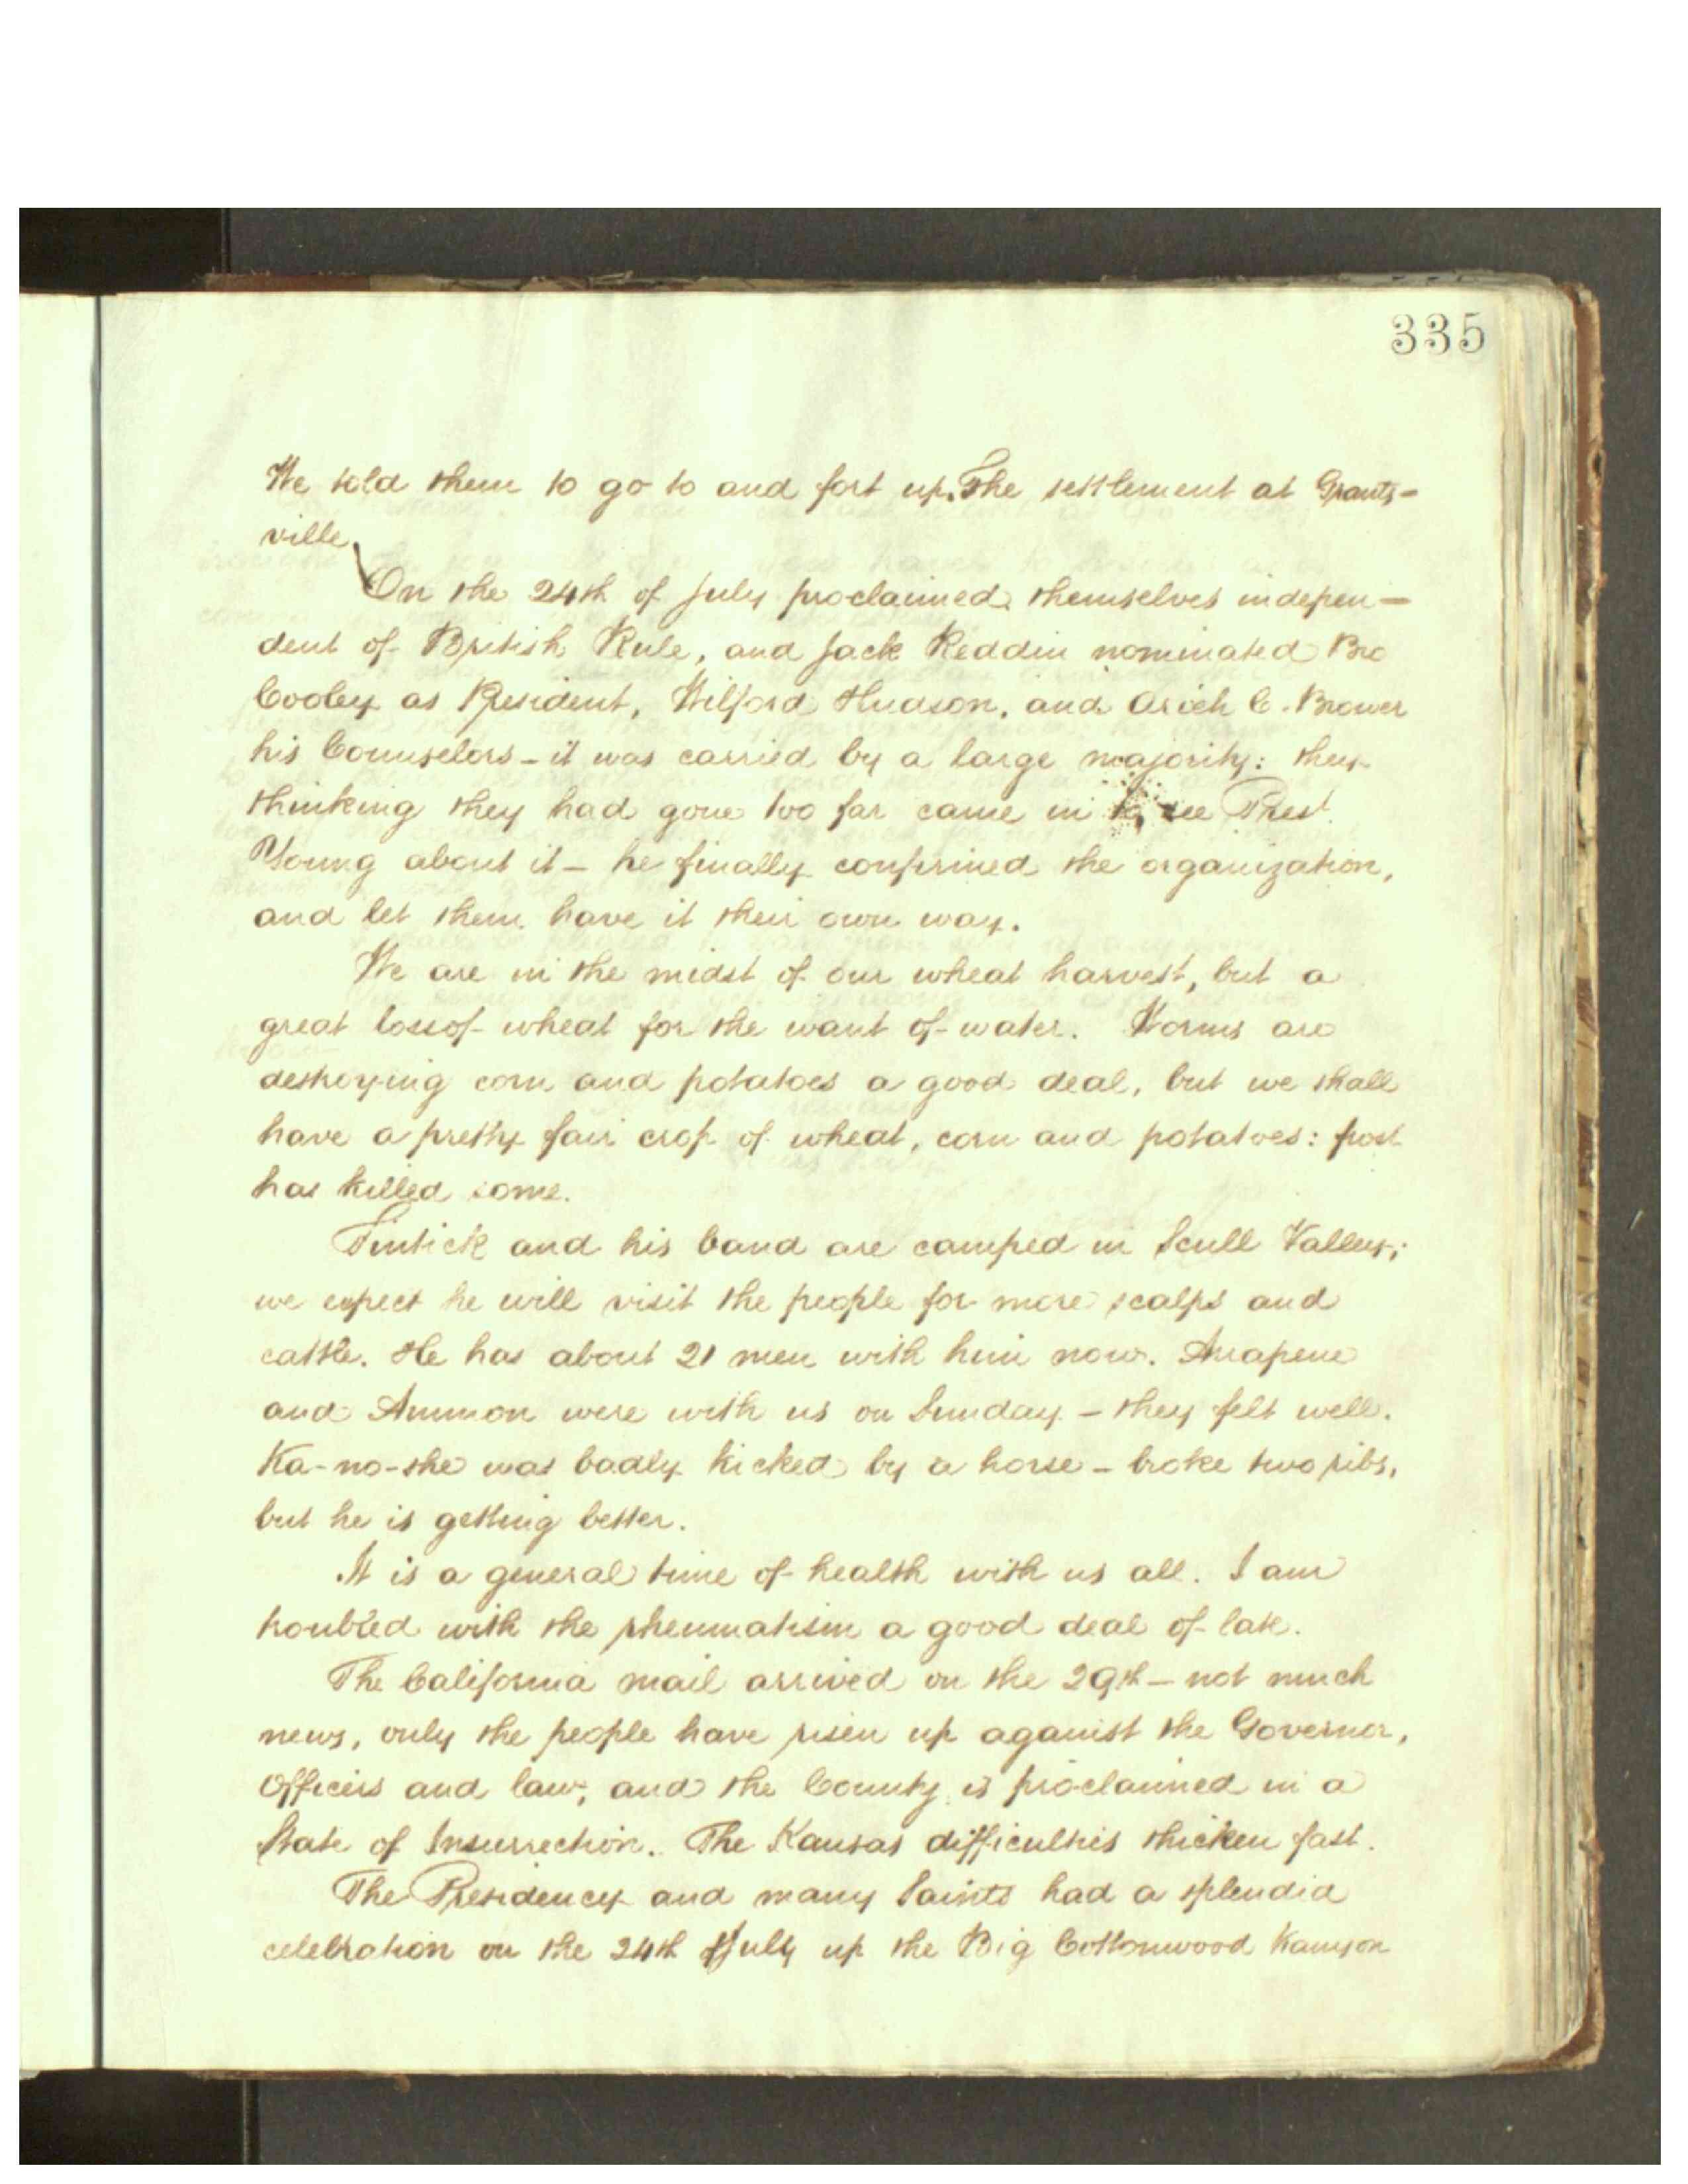 335
We told them to go to and fort up. The settlement at Grants-
ville
On the 24th of July proclaimed themselves indepen-
dent of British Rule, and Jack Reddin nominated Bro
Cooley as President, Wilford Hudson, and Arieh C. Brower
his Counselors - it was carried by a large majority: they
thinking they had gone too far came in to see Prest.
Young about it - he finally confirmed the organization,
and let them have it their own way.
We are in the midst of our wheat harvest, but a
great loss of wheat for the want of water. Worms are
destroying corn and potatoes a good deal, but we shall
have a pretty fair crop of wheat, corn and potatoes: frost
has killed some.
Tintick and his band are camped in Scull Valley;
we expect he will visit the people for more scalps and
cattle. He has about 21 men with him now. Arapene
and Ammon were with us on Sunday - they felt well.
Ka-no-she was badly kicked by a horse - broke two ribs,
but he is getting better.
It is a general time of health with us all. I am
troubled with the rheumatism a good deal of late.
The California mail arrived on the 29th - not much
news, only the people have risen up against the Governor,
Officers and law; and the County is proclaimed in a
State of Insurrection. The Kansas difficulties thicken fast.
The Presidency and many Saints had a splendid
celebration on the 24th of July up the Big Cottonwood Kanyon